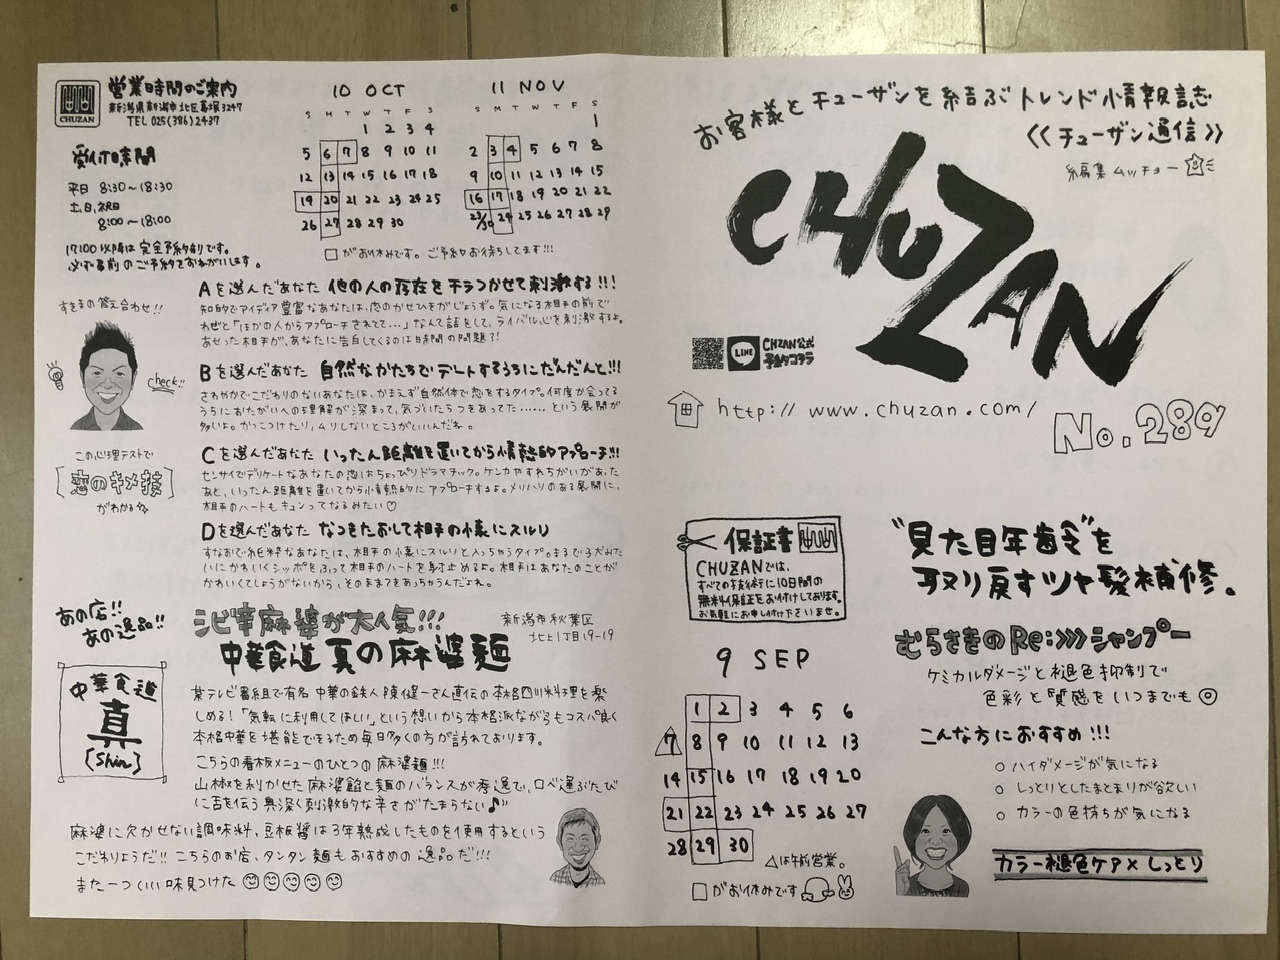 CHUZAN
営業時間のご案内
新潟県新潟市北区葛塚3247
TEL 025(386)2437
受付時間
平日 8:30〜18:30
土,日,祝日
8:00〜18:00
17:00以降は完全予約制です。
必ず事前のご予約をおねがいします。
10 OCT
S M T W T F S
1 2 3 4
5 6 7 8 9 10 11
12 13 14 15 16 17 18
19 20 21 22 23 24 25
26 27 28 29 30
11 NOV
S M T W T F S
1
2 3 4 5 6 7 8
9 10 11 12 13 14 15
16 17 18 19 20 21 22
23/30 24 25 26 27 28 29
□がお休みです。ご予約お待ちしてます!!!
すきまの答え合わせ!!
check!!
この心理テストで
[恋のキメ技]
がわかる
Aを選んだあなた 他の人の存在をチラつかせて刺激する!!!
知的でアイディア豊富なあなたは、恋のかせひきがじょうず。気になる相手の前で
わざと「ほかの人からアプローチされてて...」なんて話をして、ライバル心を刺激するよ。
あせった相手が、あなたに告白してくるのは時間の問題?!
Bを選んだあなた 自然なかたちでデートするうちにだんだんと!!!
さわやかでこだわりのないあなたは、かまえず自然体で恋をするタイプ。何度か会ってる
うちにおたがいへの理解が深まって、気づいたらつきあってた......という展開が
多いよ。かっこつけたり、ムリしないところがいいんだね。
Cを選んだあなた いったん距離を置いてから情熱的アプローチ!!!
センサイでデリケートなあなたの恋はちょっぴりドラマチック。ケンカやすれちがいがあった
あと、いったん距離を置いてから情熱的にアプローチするよ。メリハリのある展開に、
相手のハートもキュンってなるみたい♡
Dを選んだあなた なつきたおして相手の懐にスルリ
すなおで純粋なあなたは、相手の懐にスルリと入っちゃうタイプ。まるで子犬みた
いにかわいくシッポをふって相手のハートを射止めるよ。相手はあなたのことが
かわいくてしょうがないから、そのままつきあっちゃうんだよね。
あの店!!
あの逸品!!
シビ辛麻婆が大人気!!!
中華食道 真の麻婆麺
新潟市秋葉区
北上1丁目19-19
中華食道
真
[Shin]
某テレビ番組で有名 中華の鉄人 陳健一さん直伝の本格四川料理を楽
しめる!「気軽に利用してほしい」という想いから本格派ながらもコスパ良く
本格中華を堪能できるため毎日多くの方が訪れております。
こちらの看板メニューのひとつの麻婆麺!!!
山椒を利かせた麻婆餡と麺のバランスが秀逸で、口へ運ぶたび
に舌を伝う奥深く刺激的な辛さがたまらない♪
麻婆に欠かせない調味料、豆板醤は3年熟成したものを使用するという
こだわりようだ!! こちらのお店、タンタン麺もおすすめの逸品だ!!!
また一つ いい味見つけた
お客様とチューザンを結ぶトレンド情報誌
<<チューザン通信>>
編集ムッチョー
CHUZAN
LINE
CHZAN公式
予約はコチラ
http://www.chuzan.com/
No.289
保証書
CHUZANでは、
すべての技術に10日間の
無料保証をお付けしております。
お気軽にお申し付け下さいませ。
9 SEP
1 2 3 4 5 6
7 8 9 10 11 12 13
14 15 16 17 18 19 20
21 22 23 24 25 26 27
28 29 30
△は午前営業。
□がお休みです
"見た目年齢"を
取り戻すツヤ髪補修。
むらさきのRe:>>>シャンプー
ケミカルダメージと褪色抑制で
色彩と質感をいつまでも◎
こんな方におすすめ!!!
○ ハイダメージが気になる
○ しっとりとしたまとまりが欲しい
○ カラーの色持ちが気になる
カラー褪色ケア×しっとり